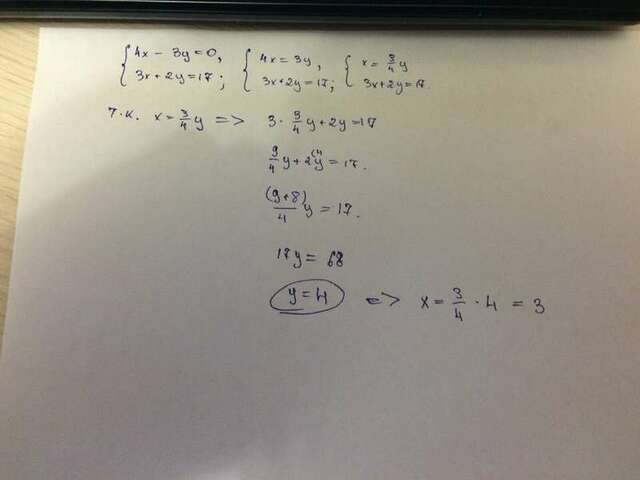 {4x - 3y = 0, {4x = 3y, {x = 3/4 y
3x + 2y = 17; 3x + 2y = 17; 3x + 2y = 17.
Т.к. x = 3/4 y => 3 · 3/4 y + 2y = 17
9/4 y + 2y (4 = 17.
(9+8)/4 y = 17.
17y = 68
y = 4 => x = 3/4 · 4 = 3